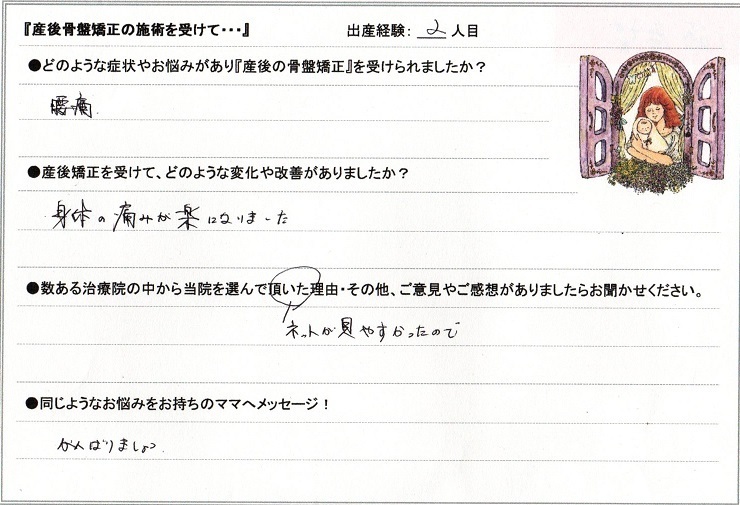 『産後骨盤矯正の施術を受けて・・・』 出産経験: 2 人目
●どのような症状やお悩みがあり『産後の骨盤矯正』を受けられましたか？
腰痛
●産後矯正を受けて、どのような変化や改善がありましたか？
身体の痛みが楽になりました
●数ある治療院の中から当院を選んで頂いた理由・その他、ご意見やご感想がありましたらお聞かせください。
ネットが見やすかったので
●同じようなお悩みをお持ちのママへメッセージ！
がんばりましょう